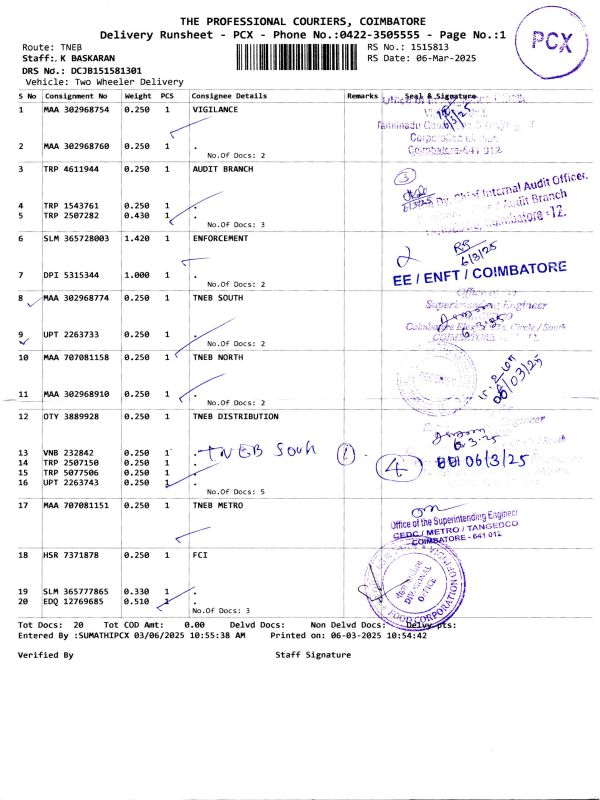 THE PROFESSIONAL COURIERS, COIMBATORE
Delivery Runsheet - PCX - Phone No.:0422-3505555 - Page No.:1
PCX
Route: TNEB
RS No.: 1515813
Staff: K BASKARAN
RS Date: 06-Mar-2025
DRS No.: DCJB151581301
Vehicle: Two Wheeler Delivery
S No Consignment No Weight PCS Consignee Details Remarks Seal & Signature
1 MAA 302968754 0.250 1 VIGILANCE
6/3/25
2 MAA 302968760 0.250 1 .
No.Of Docs: 2
Coimbatore-641 012
3 TRP 4611944 0.250 1 AUDIT BRANCH
3
Dy. Chief Internal Audit Officer,
Audit Branch
Coimbatore - 12.
4 TRP 1543761 0.250 1 .
5 TRP 2507282 0.430 1 .
No.Of Docs: 3
6 SLM 365728003 1.420 1 ENFORCEMENT
2
6/3/25
EE / ENFT / COIMBATORE
7 DPI 5315344 1.000 1 .
No.Of Docs: 2
8 MAA 302968774 0.250 1 TNEB SOUTH
Superintending Engineer
9 UPT 2263733 0.250 1 .
No.Of Docs: 2
Circle / South
10 MAA 707081158 0.250 1 TNEB NORTH
06/03/25
11 MAA 302968910 0.250 1 .
No.Of Docs: 2
12 OTY 3889928 0.250 1 TNEB DISTRIBUTION
13 VNB 232842 0.250 1 . TNEB South 1
14 TRP 2507150 0.250 1 .
15 TRP 5077506 0.250 1 .
16 UPT 2263743 0.250 1 .
No.Of Docs: 5
4 06/3/25
17 MAA 707081151 0.250 1 TNEB METRO
Office of the Superintending Engineer
CEDC / METRO / TANGEDCO
COIMBATORE - 641 012
18 HSR 7371878 0.250 1 FCI
19 SLM 365777865 0.330 1 .
20 EDQ 12769685 0.510 1 .
No.Of Docs: 3
DIVISIONAL OFFICE
FOOD CORPORATION OF INDIA
Tot Docs: 20 Tot COD Amt: 0.00 Delvd Docs: Non Delvd Docs: Delvy pts:
Entered By :SUMATHIPCX 03/06/2025 10:55:38 AM Printed on: 06-03-2025 10:54:42
Verified By Staff Signature